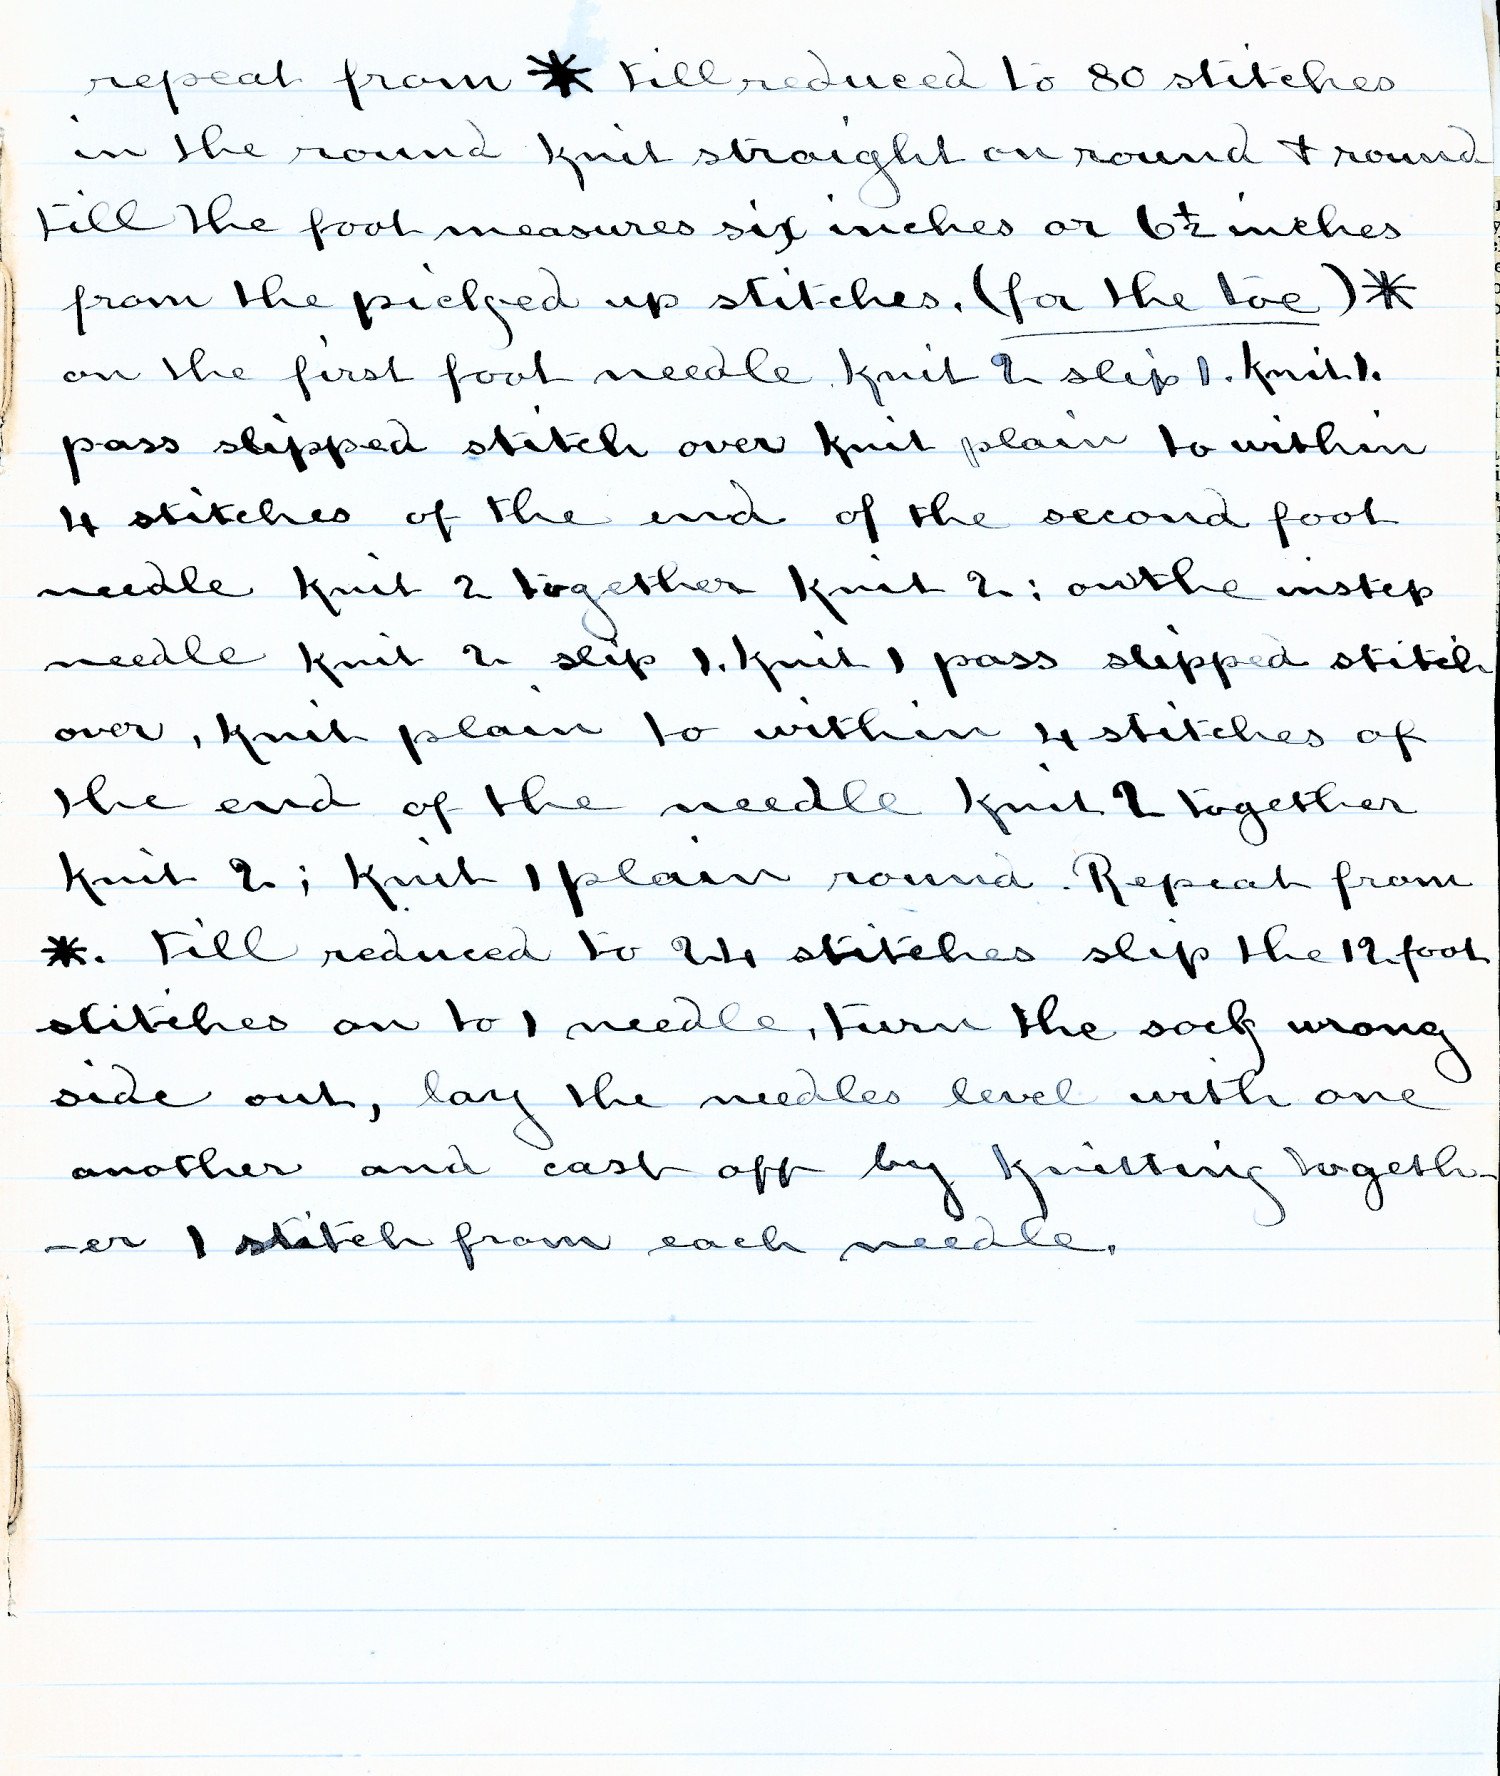 repeat from * till reduced to 80 stitches
in the round knit straight on round & round
till the foot measures six inches or 6½ inches
from the picked up stitches. (for the toe) *
on the first foot needle knit 2 slip 1. knit 1.
pass slipped stitch over knit plain to within
4 stitches of the end of the second foot
needle knit 2 together knit 2; on the instep
needle knit 2 slip 1. knit 1 pass slipped stitch
over, knit plain to within 4 stitches of
the end of the needle knit 2 together
knit 2; knit 1 plain round. Repeat from
*. till reduced to 24 stitches slip the 12 foot
stitches on to 1 needle, turn the sock wrong
side out, lay the needles level with one
another and cast off by knitting togeth-
-er 1 stitch from each needle.